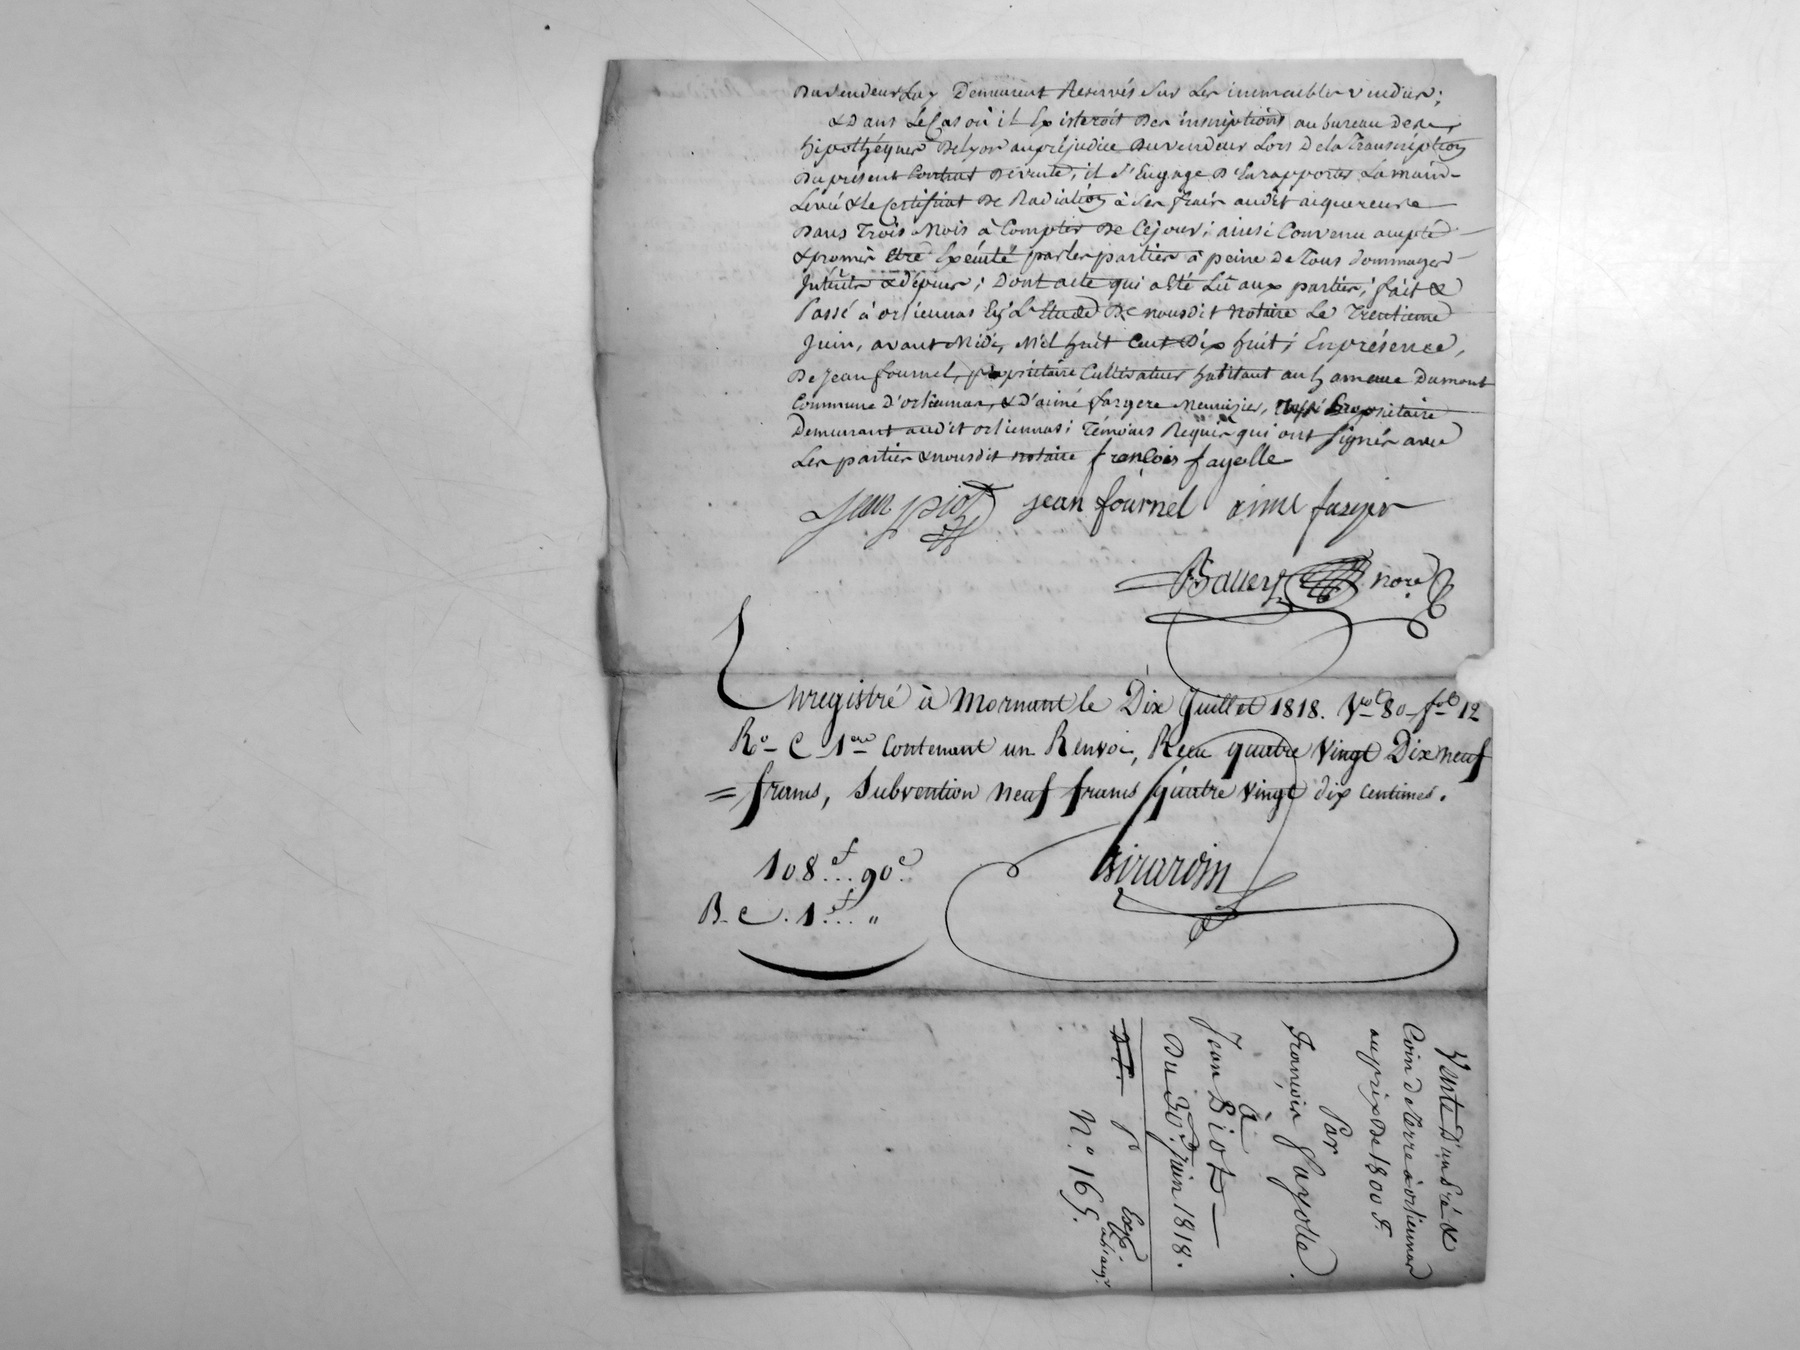 Du vendeur Luy Demeurent Reservés Sur Les immeubles vendus;
& Dans Le Cas où il Existeroit Des inscriptions au bureau des
hipothéques De Lyon au préjudice Du vendeur Lors De la Transcription
Du présent Contrat De vente, il s'Engage D'En rapporter La main-
Levée & le Certificat De Radiation à Ses frais audit aiquereur
Dans Trois Mois à Compter De Cejour; ainsi Convenu accepté
& promis Etre Exécuté par les parties à peine De Tous dommages
Intérêts & dépens; Dont acte qui a Eté Lu aux parties, fait &
Passé à orliennas En L'Etude De nousdit Notaire Le Trentieme
Juin, avant Midi, Mil huit Cent Dix huit; En présence,
De Jean fournel, propriétaire Cultivateur habitant au hameau Dumont
Commune D'orliennas, & D'aimé fargere Menuizier, Propriétaire
Demeurant audit orliennas; Témoins Requis qui ont Signés avec
Les parties & nousdit notaire françois fayolle
Jean piot jean fournel aimé
noré
Enregistré à Mornant le Dix Juillet 1818. Vol 80 fol 12
Ro C 1ere Contenant un Renvoi, Recu quatre Vingt Dix neuf
= francs, Subvention neuf francs quatre vingt dix centimes.
108 f... 90 c
Girardin
B. C. 1 f... "
Vente D'un Pré &
Coin de Terre à orliennas
au prix De 1800 f.
Par
François Fayolle.
à
Jean Piot
Du 30 Juin 1818.
N.o 165.